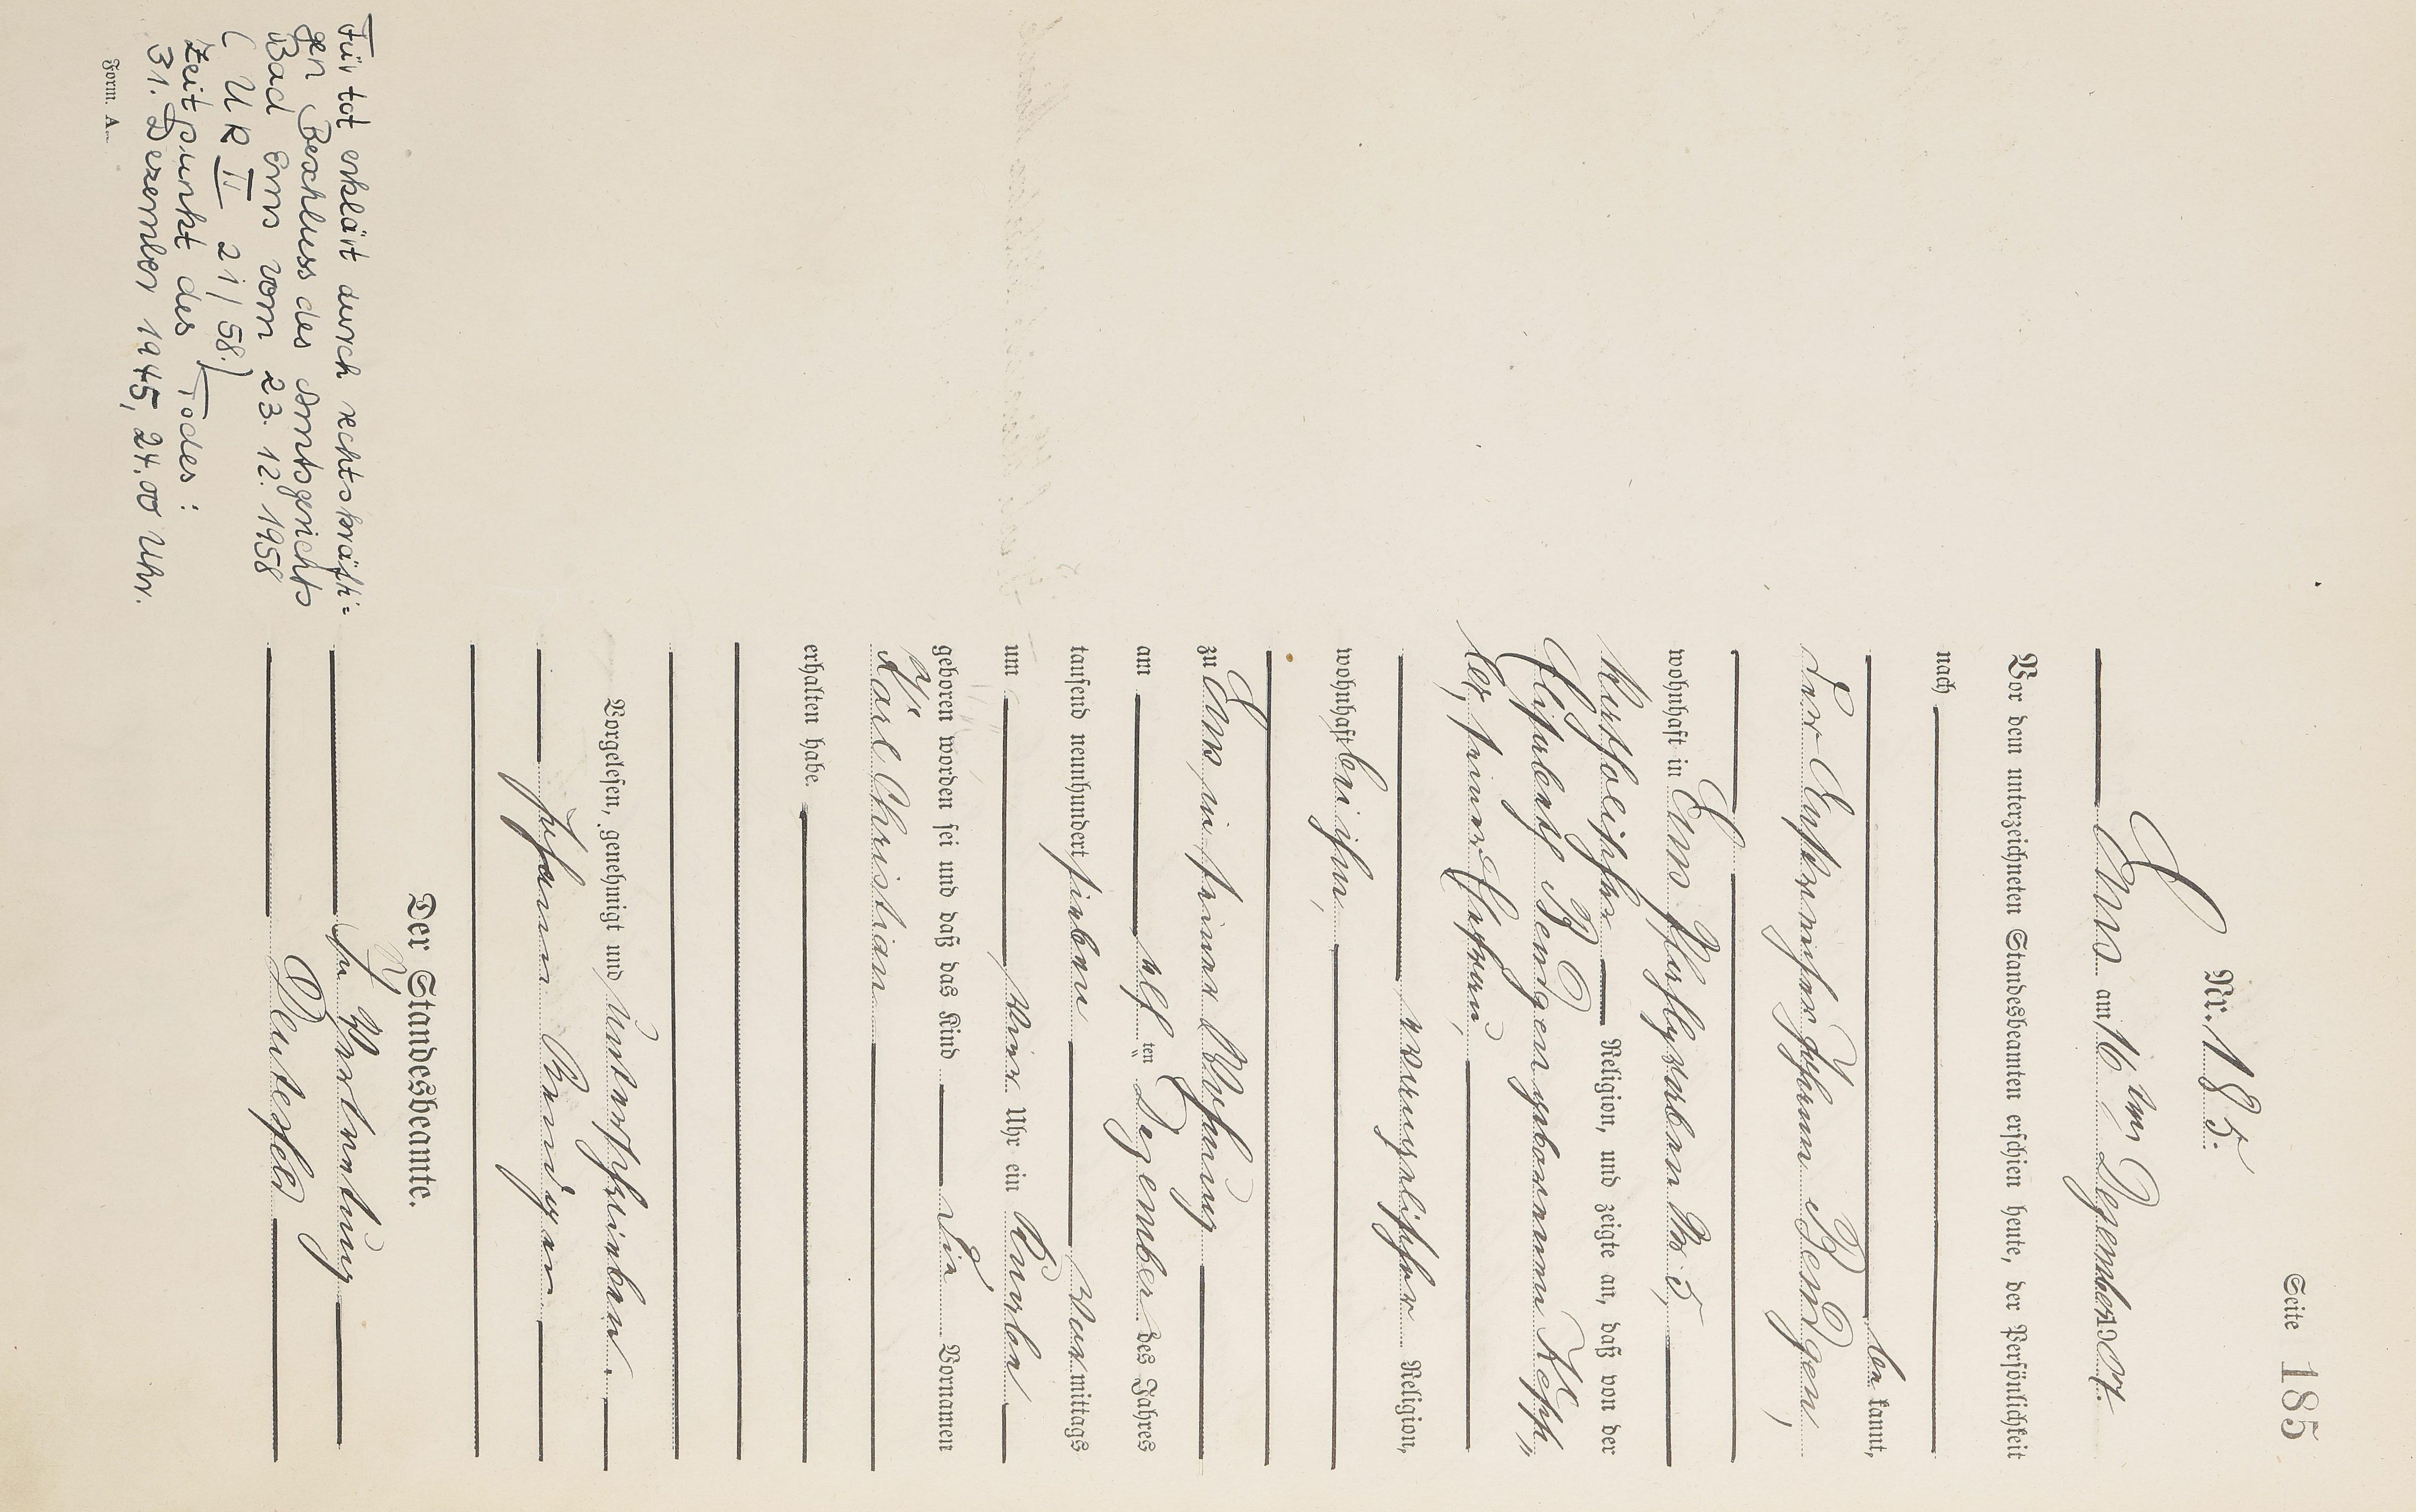 Seite 185
Nr. 185.
Ems am 16ten Dezember 1907.
Vor dem unterzeichneten Standesbeamten erschien heute, der Persönlichkeit
nach
be kannt,
der
Johann Bendgen,
wohnhaft in Ems
Nr 5,
katholischer Religion, und zeigte an, daß von der
Elisabeth Bendgen geborenen Kepp„
ler, seiner Ehefrau,
evangelischer Religion,
wohnhaft bei ihm,
zu Ems, in seiner Wohnung
am elf ten Dezember des Jahres
tausend neunhundert sieben Vor mittags
um
Uhr ein Knabe
geboren worden sei und daß das Kind die Vornamen
Karl Christian
erhalten habe.
Vorgelesen, genehmigt und unterschrieben
Johann
Der Standesbeamte.
In Vertretung
Für tot erklärt durch rechtskräfti=
gen Beschluss des Amtsgerichts
Bad Ems vom 23. 12. 1958
( UR II 21/58.)
Zeitpunkt des Todes:
31. Dezember 1945, 24.00 Uhr.
Form. A.